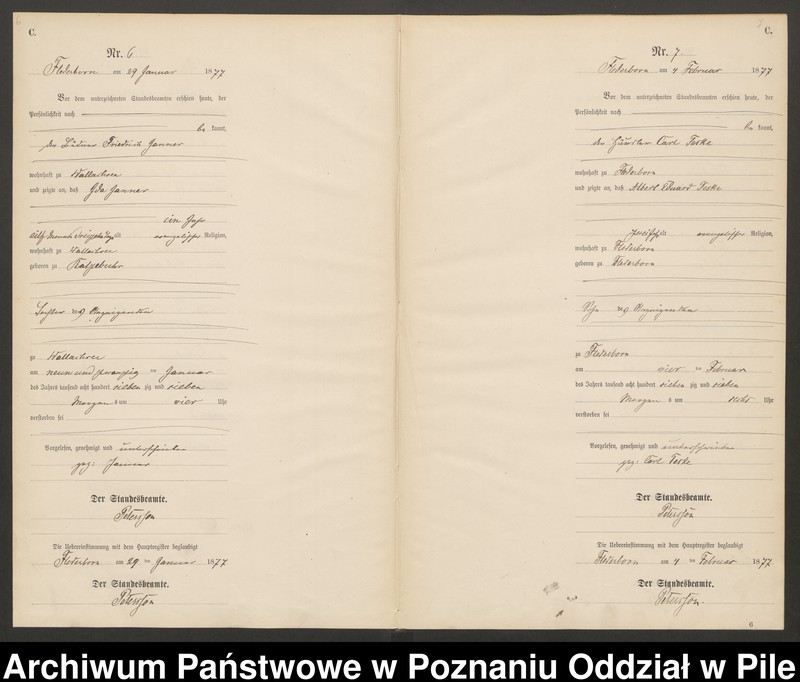 6
C.
Nr. 6
Flederborn am 29 Januar 1877
Vor dem unterzeichneten Standesbeamten erschien heute, der
Persönlichkeit nach
be kannt,
der Büdner Friedrich Janner
wohnhaft zu Wallachsee
und zeigte an, daß Ida Janner
ein Jahr
elf Monate alt evangelischer Religion,
wohnhaft zu Wallachsee
geboren zu Ratzebuhr
Tochter des Anzeigenden
zu Wallachsee
am neun und zwanzig ten Januar
des Jahrs tausend acht hundert sieben zig und sieben
Morgen s um vier Uhr
verstorben sei
Vorgelesen, genehmigt und unterschrieben
gez: Janner
Der Standesbeamte.
Peterssen
Die Uebereinstimmung mit dem Hauptregister beglaubigt
Flederborn am 29 ten Januar 1877
Der Standesbeamte.
Peterssen
7
C.
Nr. 7
Flederborn am 4 Februar 1877
Vor dem unterzeichneten Standesbeamten erschien heute, der
Persönlichkeit nach
be kannt,
der Häusler Carl Teske
wohnhaft zu Flederborn
und zeigte an, daß Albert Eduard Teske
alt evangelischer Religion,
wohnhaft zu Flederborn
geboren zu Flederborn
Sohn des Anzeigenden
zu Flederborn
am vier ten Februar
des Jahrs tausend acht hundert sieben zig und sieben
Morgen s um Uhr
verstorben sei
Vorgelesen, genehmigt und unterschrieben
gez: Carl Teske
Der Standesbeamte.
Peterssen
Die Uebereinstimmung mit dem Hauptregister beglaubigt
Flederborn am 4 ten Februar 1877
Der Standesbeamte.
Peterssen.
6
Archiwum Państwowe w Poznaniu Oddział w Pile